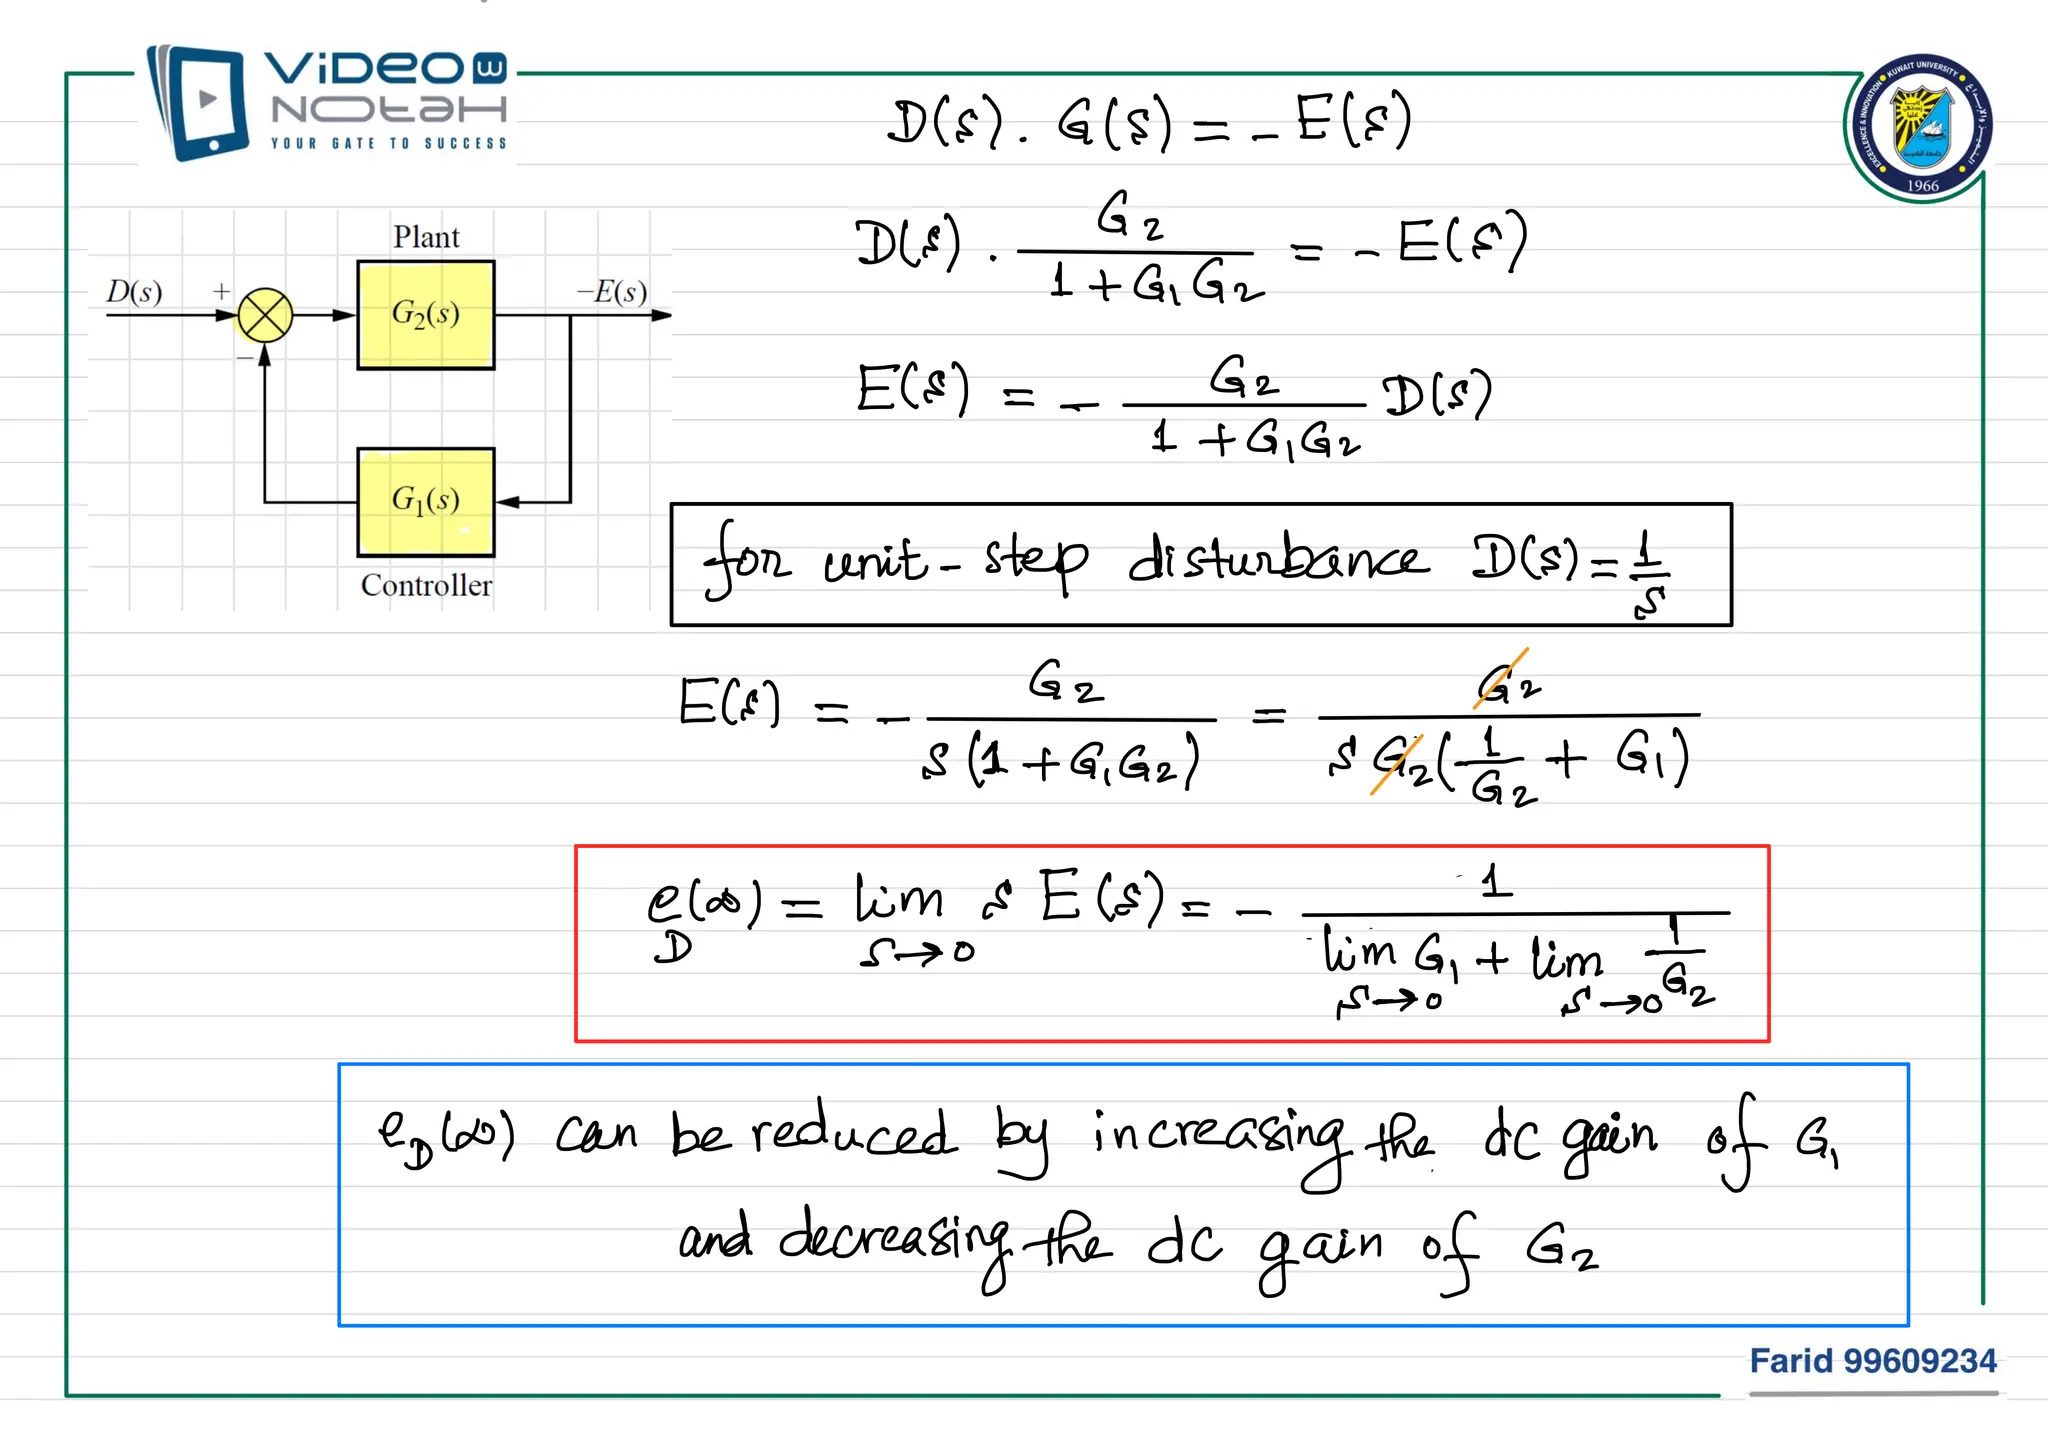 ViDEO W
NOtaH
YOUR GATE TO SUCCESS
KUWAIT UNIVERSITY
EXCELLENCE & INNOVATION
1966
D(s) . G(s) = - E(s)
D(s) . G2 / (1 + G1 G2) = - E(s)
E(s) = - G2 / (1 + G1G2) D(s)
Plant
D(s) + G2(s) -E(s)
−
G1(s)
Controller
for unit-step disturbance D(s) = 1/s
E(s) = - G2 / (s(1 + G1G2)) = G2 / (s G2(1/G2 + G1))
eD(∞) = lim s→0 s E(s) = - 1 / (lim s→0 G1 + lim s→0 1/G2)
eD(∞) can be reduced by increasing the dc gain of G1
and decreasing the dc gain of G2
Farid 99609234